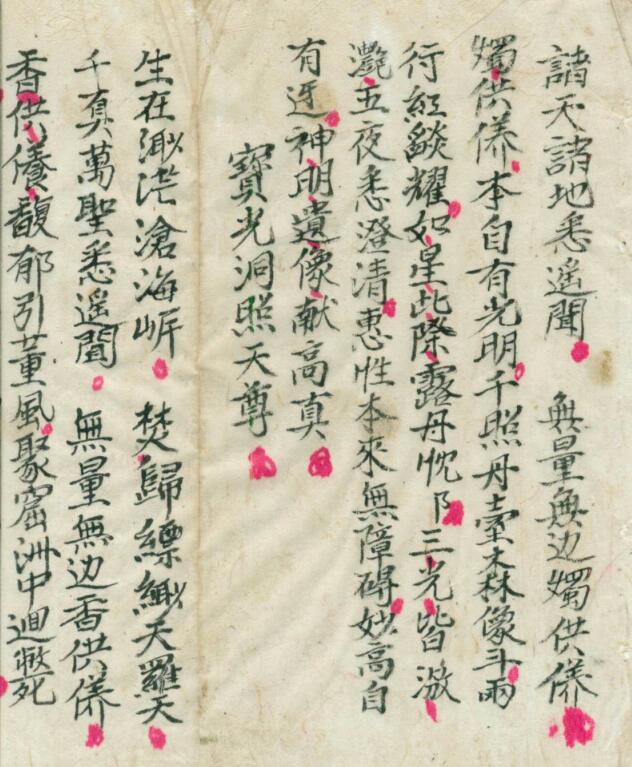 諸天諸地悉遙聞 無量無边燭供俻
燭供俻李自有光明千照丹臺森像斗兩
行紅燄耀如星此際露丹忱卩三光皆激
灧五夜悉澄清惠性本來無障碍妙高自
有迓神明遺像献高真
寳光洞照天尊
生在渺茫滄海岍 焚歸縹緲天羅天
千真萬聖悉遙聞 無量無边香供俻
香供俻馥郁引董風聚窟洲中迴斃死